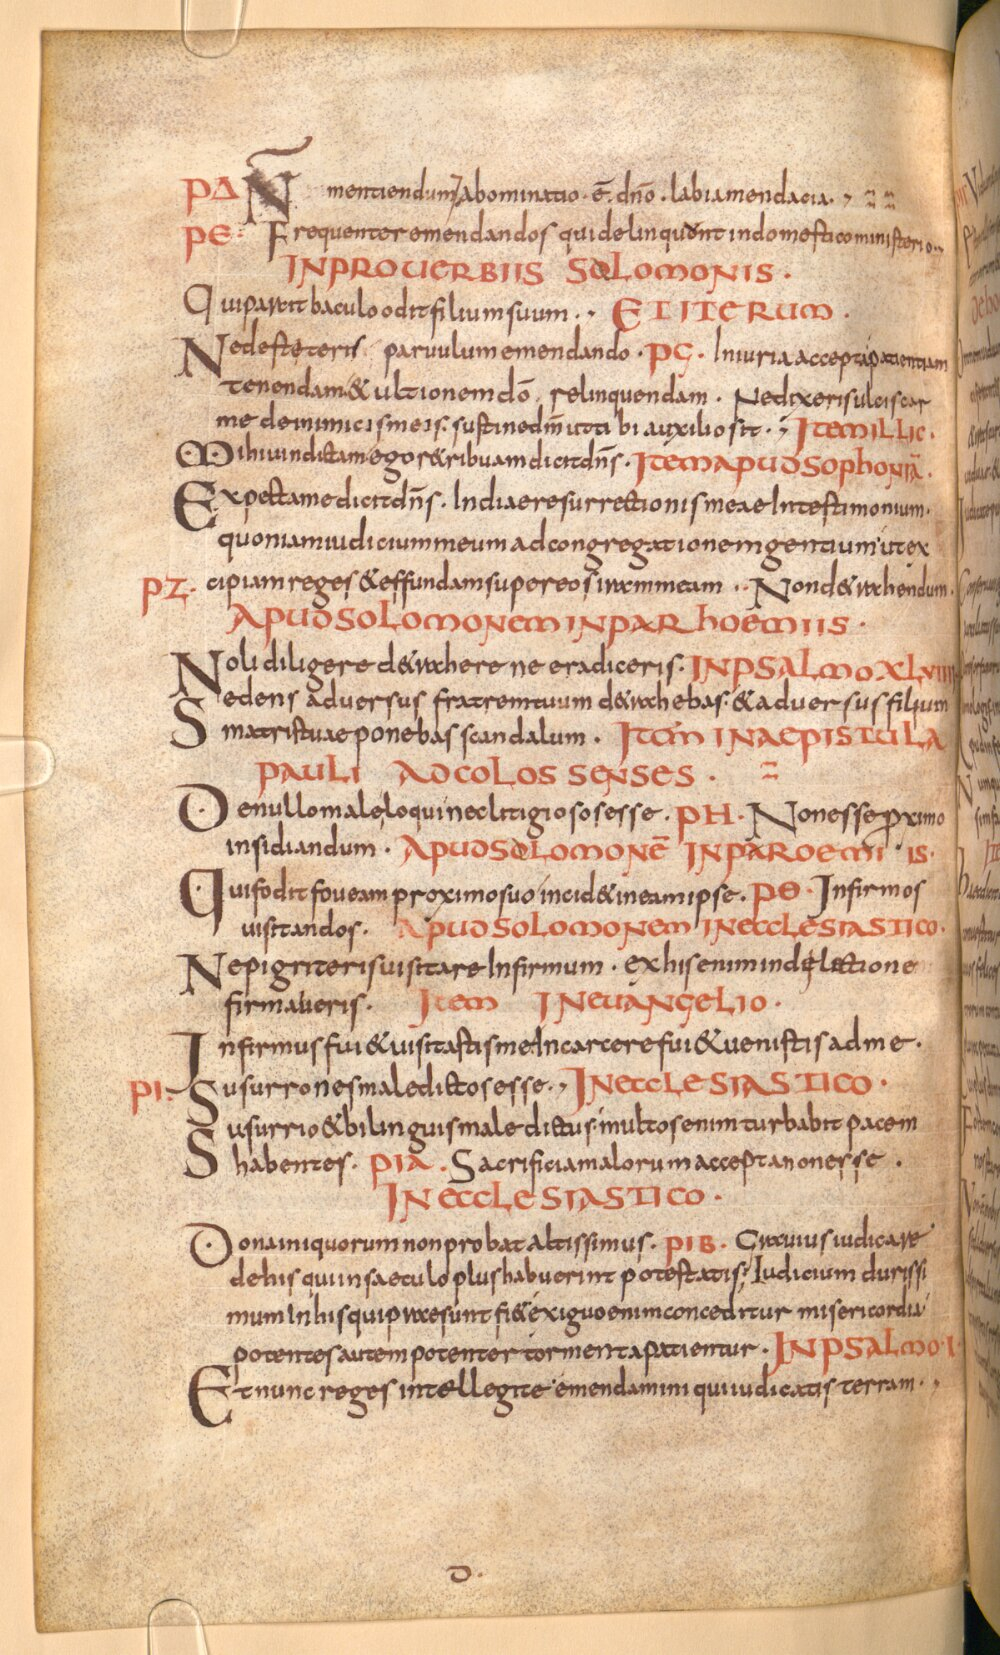 PΔ N̄ mentiendum abominatio · ē · dn̄o · labiamendacia ·
PE · Frequenter emendandos quidelinquunt indomestico ministerio ·
INPROUERBIIS SOLOMONIS ·
Quiparcit baculo odit filium suum · ET ITERUM ·
Nedesteteris parvulum emendando · PϚ · Iniuria accepta patientiam
tenendam & ultionem dō relinquendam · Nedixeris ulciscar
me deinimicis meis · sustine dn̄m ut tibi auxilio sit · ITEM ILLIC ·
Mihi uindictam ego retribuam dicit dn̄s · ITEM APUD SOPHONIĀ ·
Expecta me dicit dn̄s · In diae resurrectionis meae In testimonium ·
quoniam iudicium meum ad congregationem gentium ut ex
PZ · cipiam reges & effundam super eos iram meam · Non detrahendum ·
APUD SOLOMONEM IN PARHOEMIIS ·
Noli diligere detrahere ne eradiceris · IN PSALMO XLVIIII
Sedens adversus fratrem tuum detrahebas · & adversus filium
matris tuae ponebas scandalum · ITEM IN AEPISTULA
PAULI AD COLOSSENSES ·
De nullo male loqui nec litigiosos esse · PH · Non esse proximo
insidiandum · APUD SOLOMONĒ IN PAROEMIIS ·
Qui fodit foveam proximo suo incidet in eam ipse · PΘ · Infirmos
uisitandos · APUD SOLOMONEM IN ECCLESIASTICO ·
Ne pigriteris uisitare Infirmum · ex his enim in dilectione
firmaueris · ITEM IN EUANGELIO ·
Infirmus fui & uisitastis me In carcere fui & uenistis ad me ·
PI · Susurrones maledictos esse · IN ECCLESIASTICO ·
Susurrio & bilinguis maledictus multos enim turbabit pacem
habentes · PIA · Sacrificia malorum accepta non esse ·
IN ECCLESIASTICO ·
Dona iniquorum non probat altissimus · PIB · Gravius iudicare
de his qui in saeculo plus habuerint potestatis · Iudicium durissi
mum In his qui praesunt fi& exiguo enim conceditur misericordia
potentes autem potenter tormenta patientur · IN PSALMO · I ·
Et nunc reges intellegite emendamini qui iudicatis terram ·
D ·